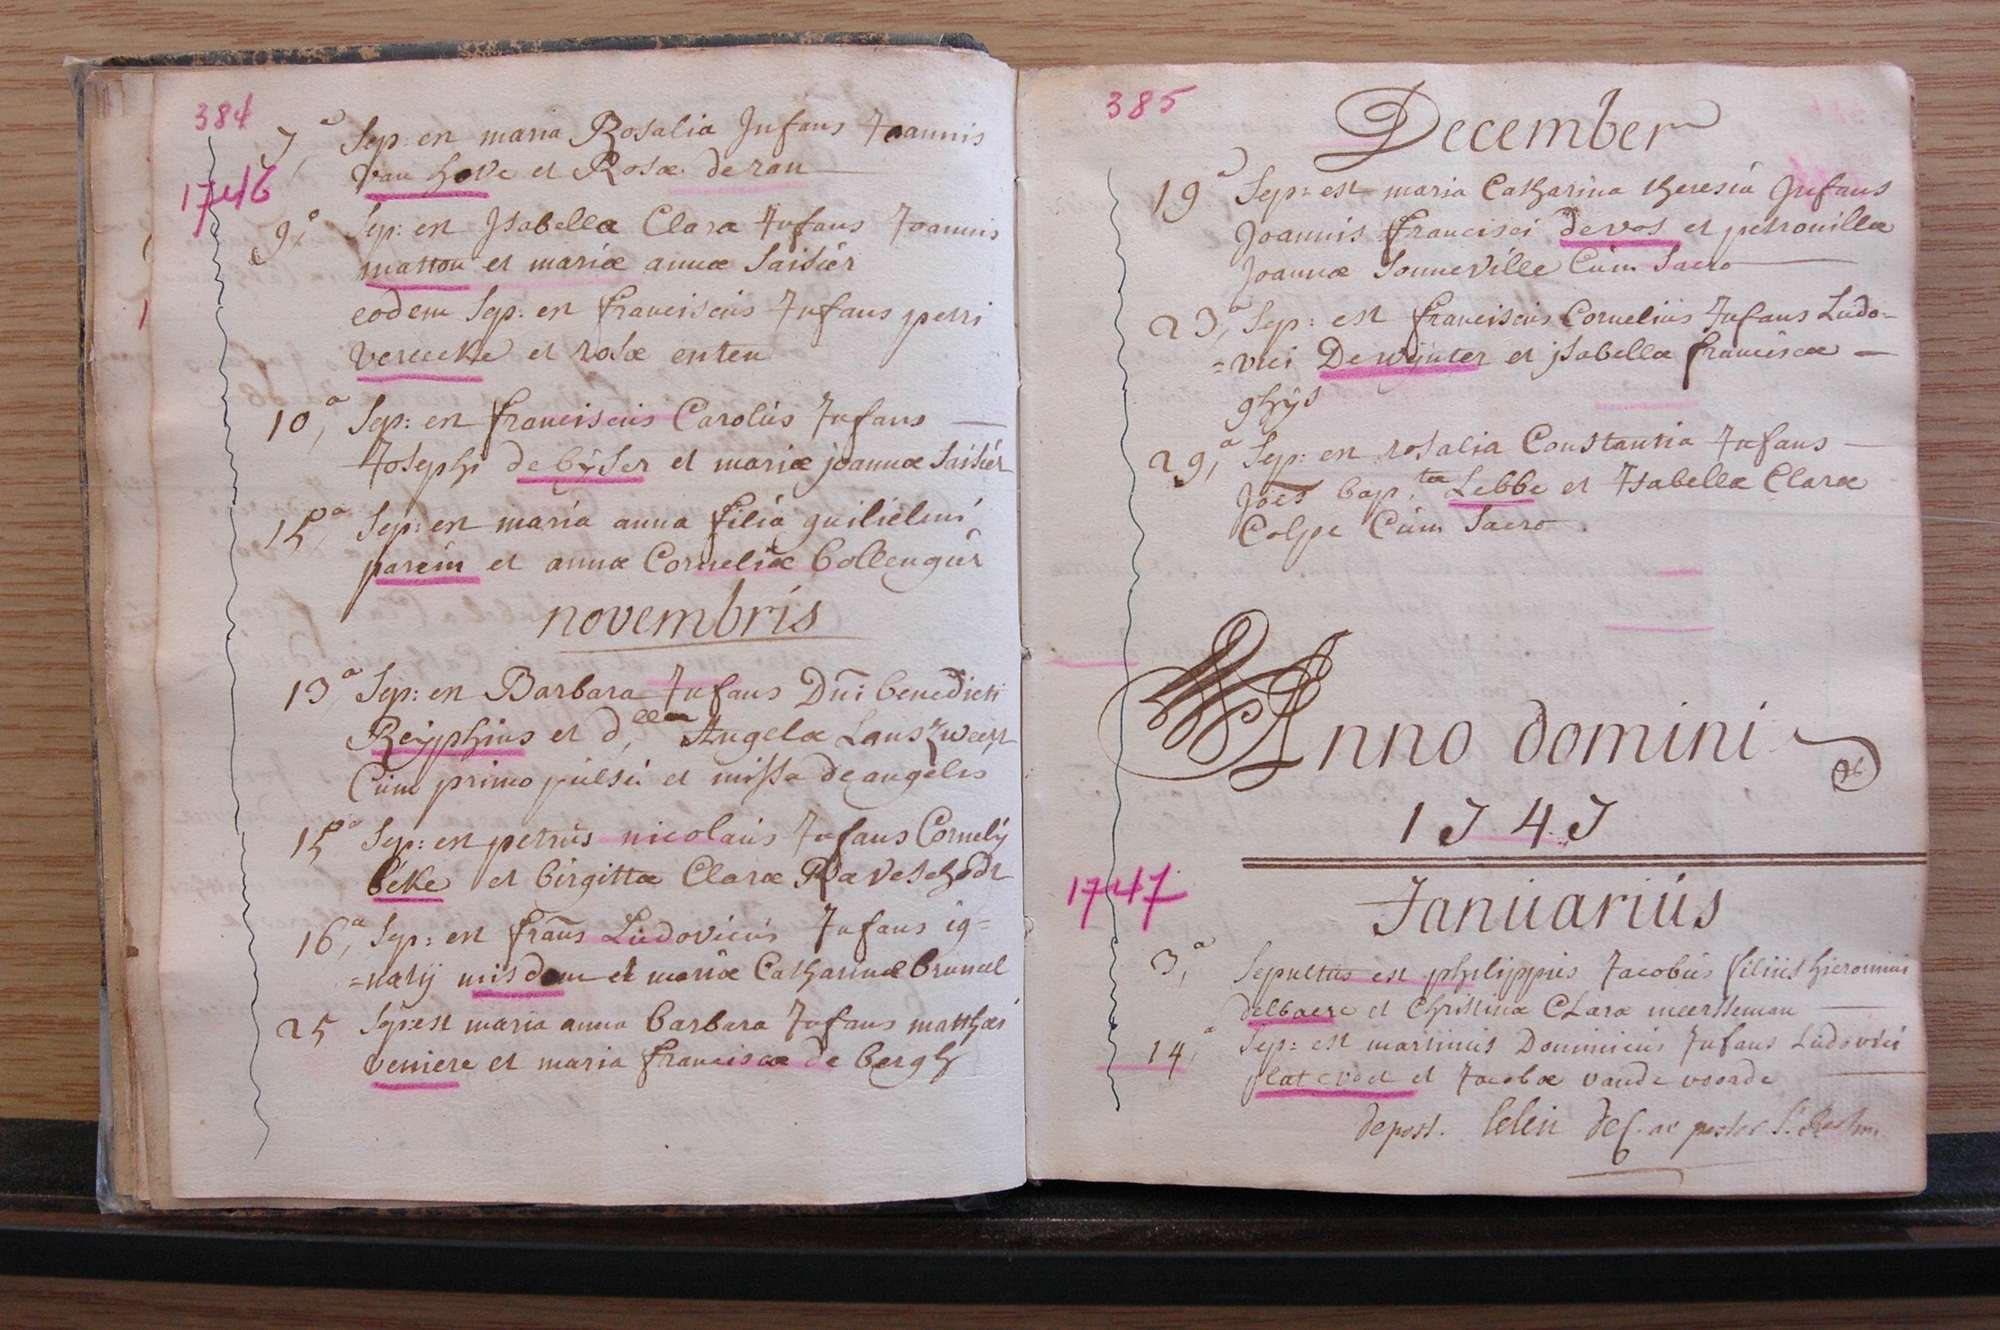 384
7,a Sep: est maria Rosalia Infans Joannis
van hove et Rosæ de rau
1746
9,a Sep: est Isabella Clara Infans Joannis
matton et mariæ annæ Saisier
eodem Sep: est franciscus Infans petri
vereecke et rosæ enten
10,a Sep: est franciscus Carolus Infans —
Josephi de byser et mariæ joannæ Saisier
15,a Sep: est maria anna filia guilielmi
parein et annæ Corneliæ bollengier
novembris
13,a Sep: est Barbara Infans Dni benedicti
Reyphins et d,llæ Angelæ Lanszweert
Cum primo pulsu et missa de angelis
15,a Sep: est petrus nicolaus Infans Cornely
béke et birgittæ Claræ Raveschodt
16,a Sep: est frans Ludovicus Infans ig=
=naty misdom et mariæ Catharinæ brunel
25 Sep: est maria anna barbara Infans matthæi
veniere et maria franciscæ de bergh
385
December
19a Sep: est maria Catharina theresia Infans
Joannis francisci de vos et petronillæ
Joannæ Sonneville Cum Sacro
23,a Sep: est franciscus Cornelius Infans Ludo-
=vici De wynter et isabellæ franciscæ —
ghys
29,a Sep: est rosalia Constantia Infans —
Joës bap,tæ Lebbe et Isabellæ Claræ
Colpe Cum Sacro.
Anno domini
1747
1747
Januarius
3,a Sepultus est philippus Jacobus filius hieronimi
delbaere et Christinæ Claræ meersseman
14,a Sep: est martinus Dominicus Infans Ludovici
platevoet et Jacobæ vande voorde